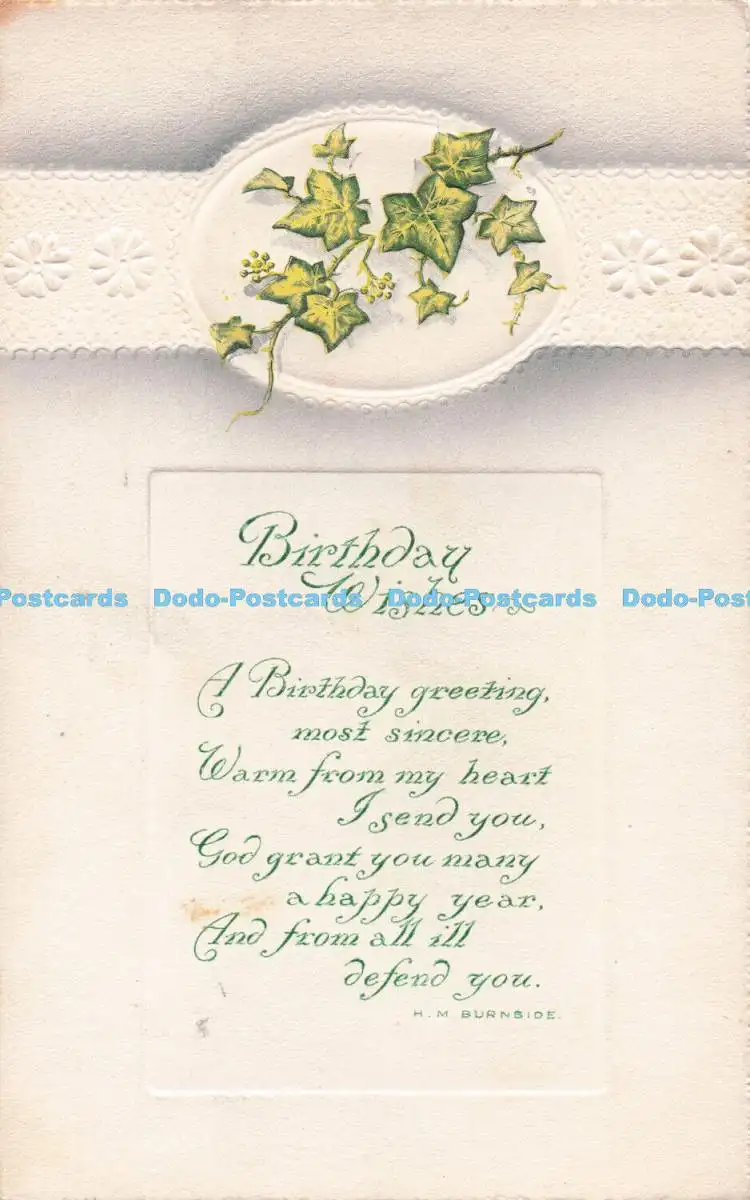 Birthday
Wishes
Postcards Dodo-Postcards Dodo-Postcards Dodo-Post
A Birthday greeting,
most sincere,
Warm from my heart
I send you,
God grant you many
a happy year,
And from all ill
defend you.
H. M BURNSIDE.